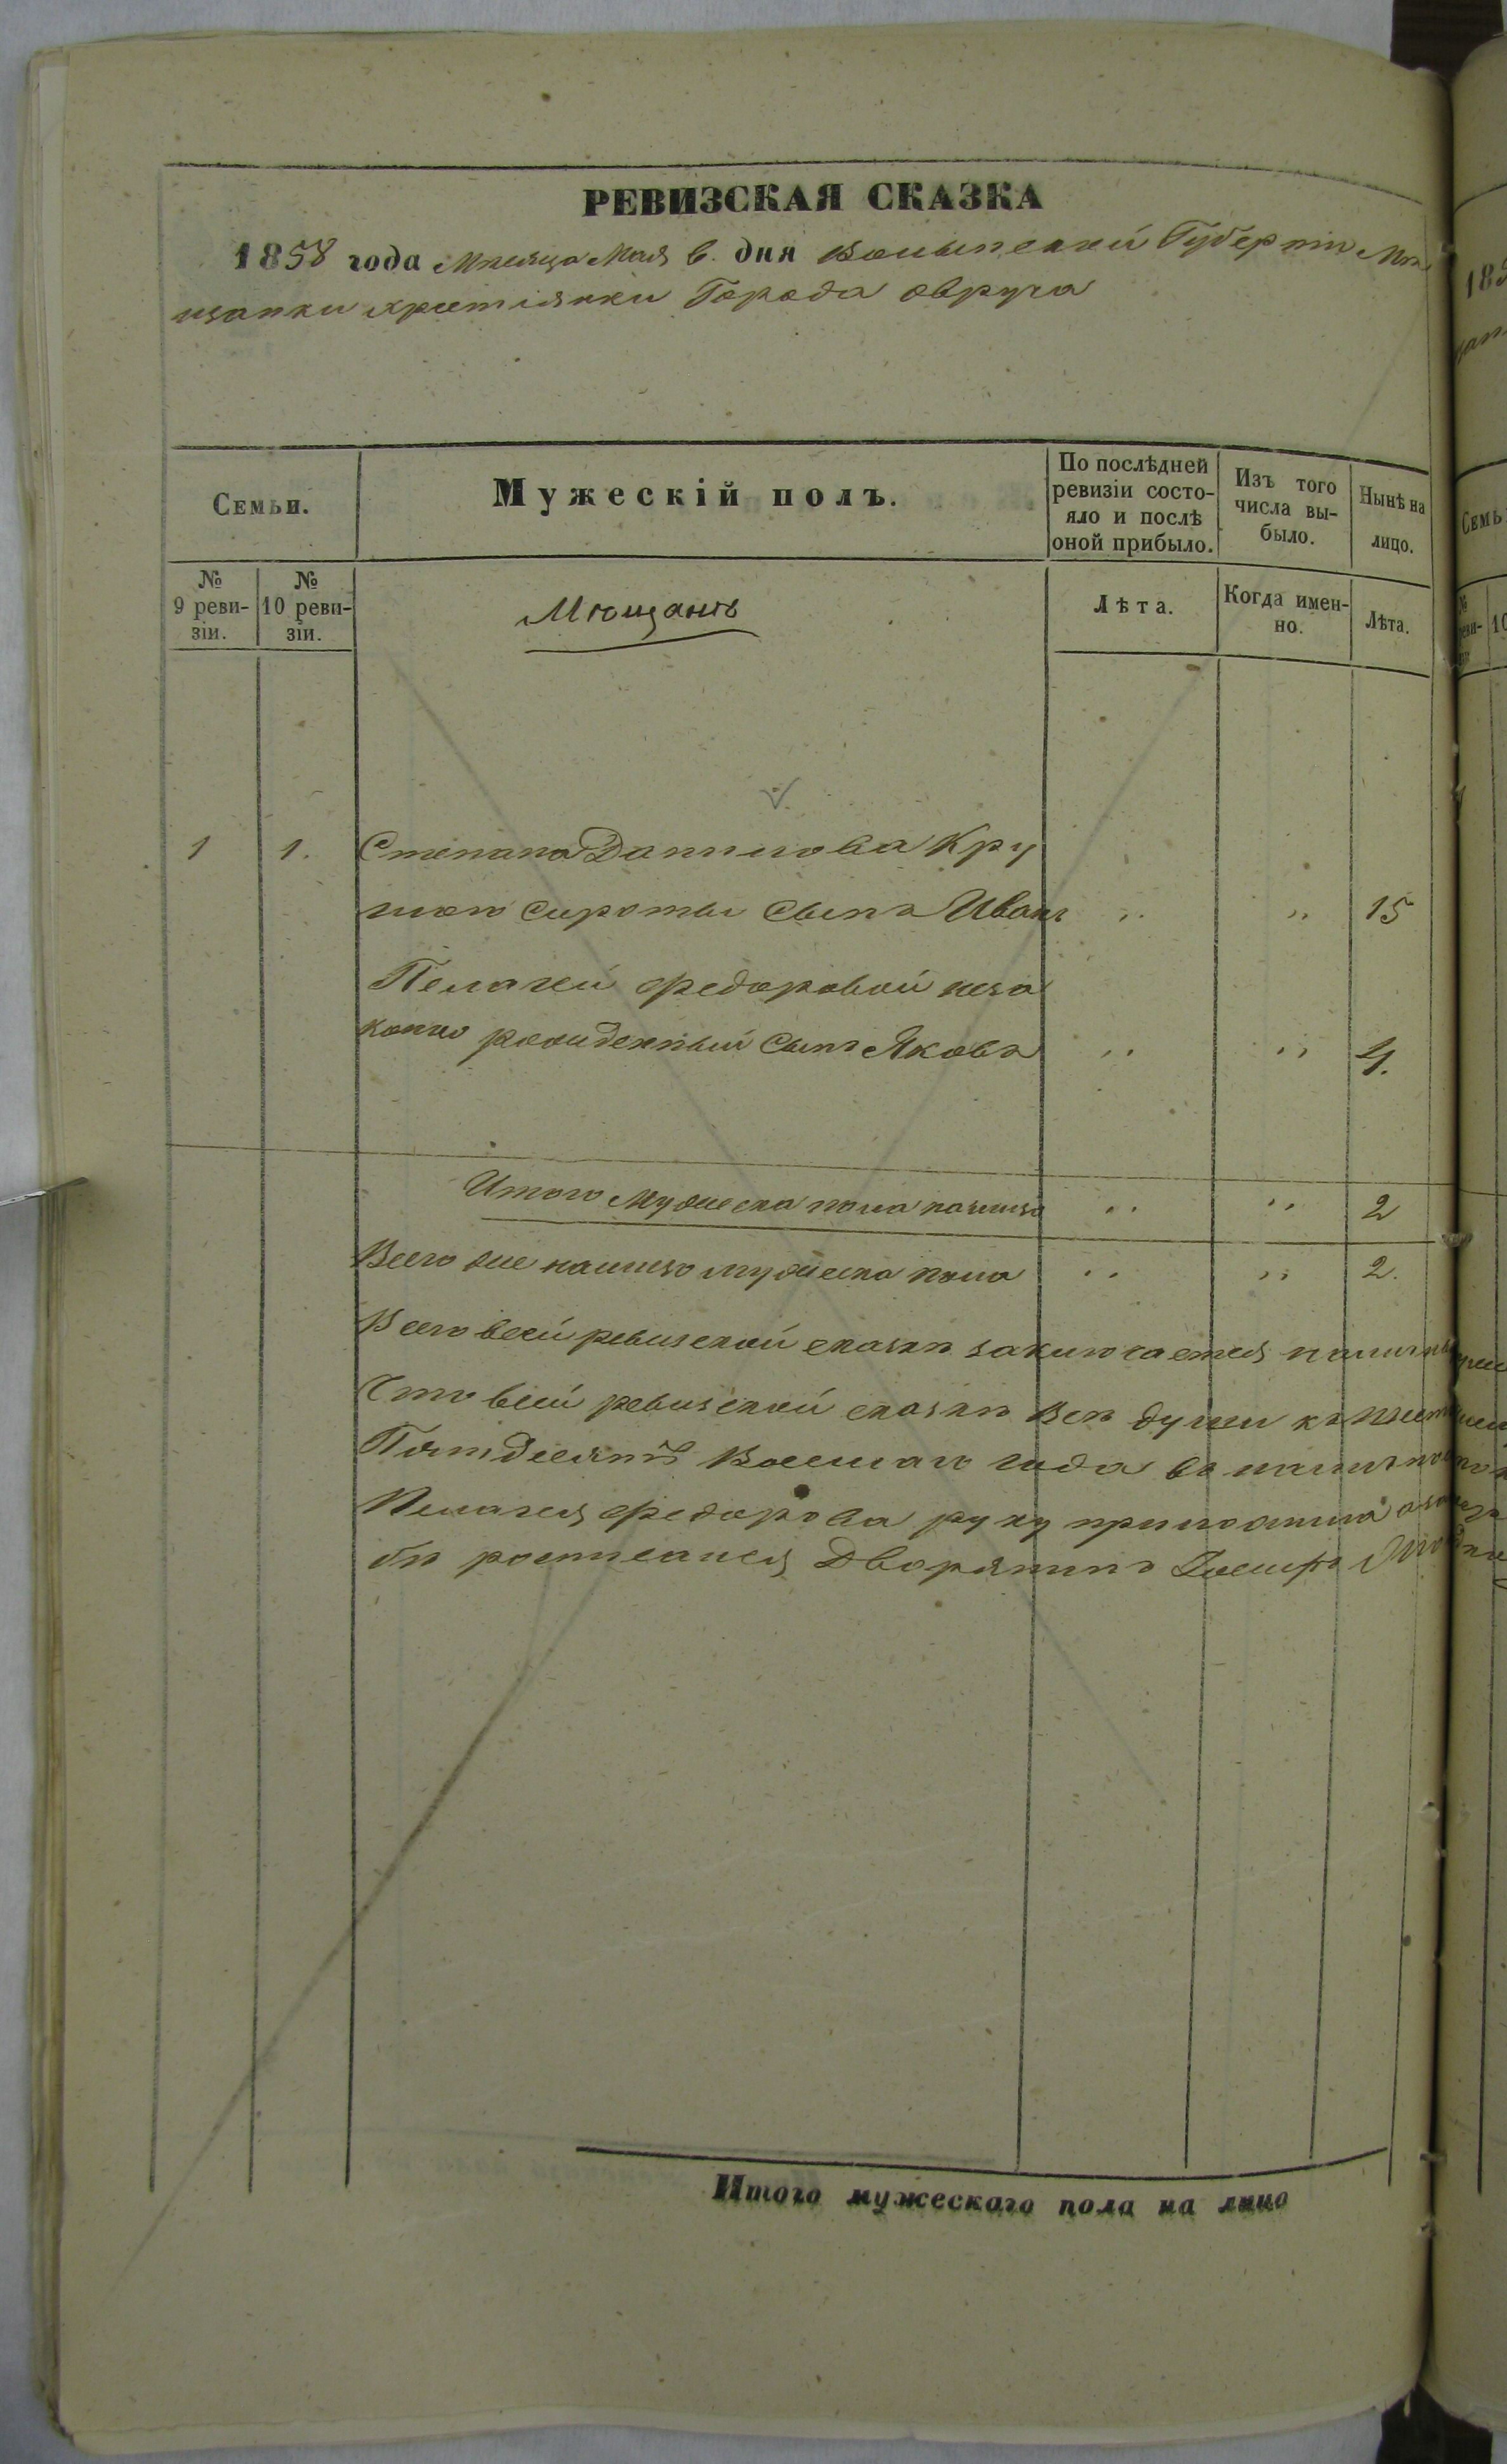 РЕВИЗСКАЯ СКАЗКА
1858 года Мѣсяца Мая 6. дня Волынской Губерніи Мѣ
щанки христіянки Города Овруча
Семьи.
Мужескій полъ.
По послѣдней
ревизіи состо-
яло и послѣ
оной прибыло.
Изъ того
числа вы-
было.
Нынѣ на
лицо.
№
9 реви-
зіи.
№
10 реви-
зіи.
Мющанъ
Лѣта.
Когда имен-
но.
Лѣта.
1 1. Степана Данилова Кру
сироты Сынъ Иванъ " " 15
Пелагеи Федоровой неза
конно рожденный Сынъ Яковъ " " 4.
Итого Мужеска пола налицо " " 2
Всего же налицо мужеска пола " " 2.
Всего всей ревизской сказкѣ заключается
Что всей ревизской сказкѣ Всѣ души къ
Пятдесятъ Восмаго года въ
Пелагея Федорова руку приложила а
бѣ росписался Дворянинъ Іосифъ
Итого мужескаго пола на лицо
183
Семь
№
реви-
зіи
10